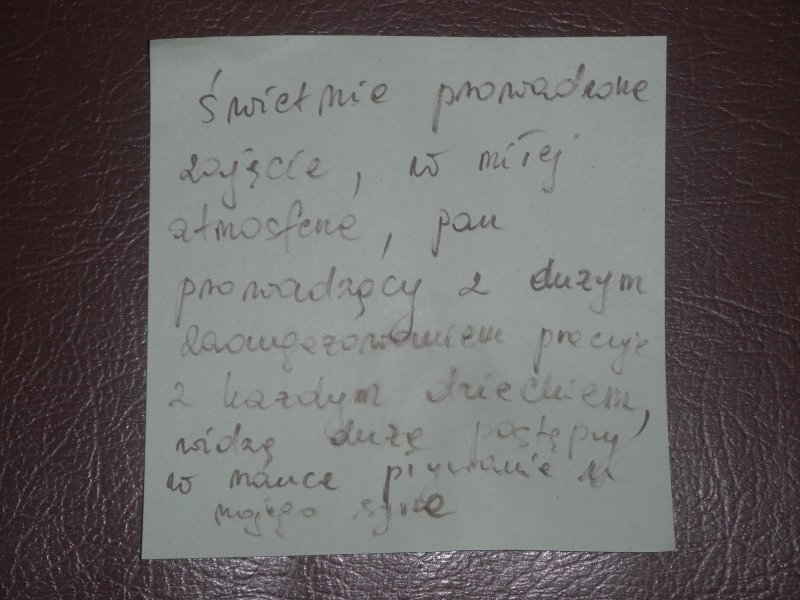 świetnie prowadzone
zajęcia, w miłej
atmosferze, pan
prowadzący z dużym
zaangażowaniem pracuje
z każdym dzieckiem,
widzę duże postępy
w nauce pływania u
mojego syna